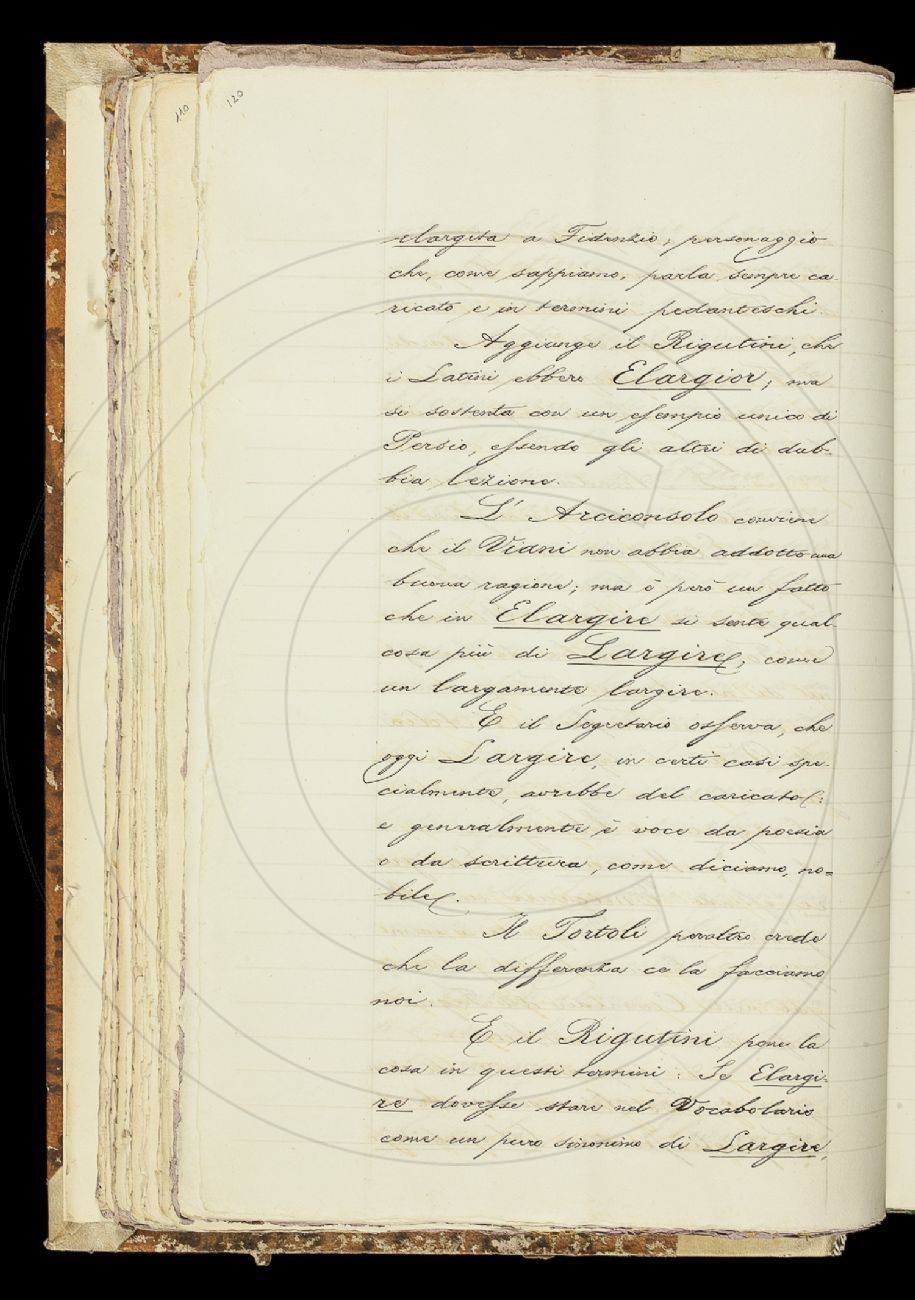 110
120
elargita a Fidenzio, personaggio
che, come sappiamo, parla sempre ca-
ricato e in termini pedanteschi.
Aggiunge il Rigutini, che
i Latini ebbero Elargior; ma
si sostenta con un esempio unico di
Persio, essendo gli altri di dub-
bia lezione.
L'Arciconsolo conviene
che il Viani non abbia addotto una
buona ragione; ma è però un fatto
che in Elargire si sente qual-
cosa più di Largire, come
un largamente largire.
E il Segretario osserva, che
oggi Largire, in certi casi spe-
cialmente, avrebbe del caricato:
e generalmente è voce da poesia
o da scrittura, come diciamo, no=
bile.
Il Tortoli peraltro crede
che la differenza ce la facciamo
noi.
E il Rigutini pone la
cosa in questi termini: Se Elargi-
re dovesse stare nel Vocabolario
come un puro sinonimo di Largire,